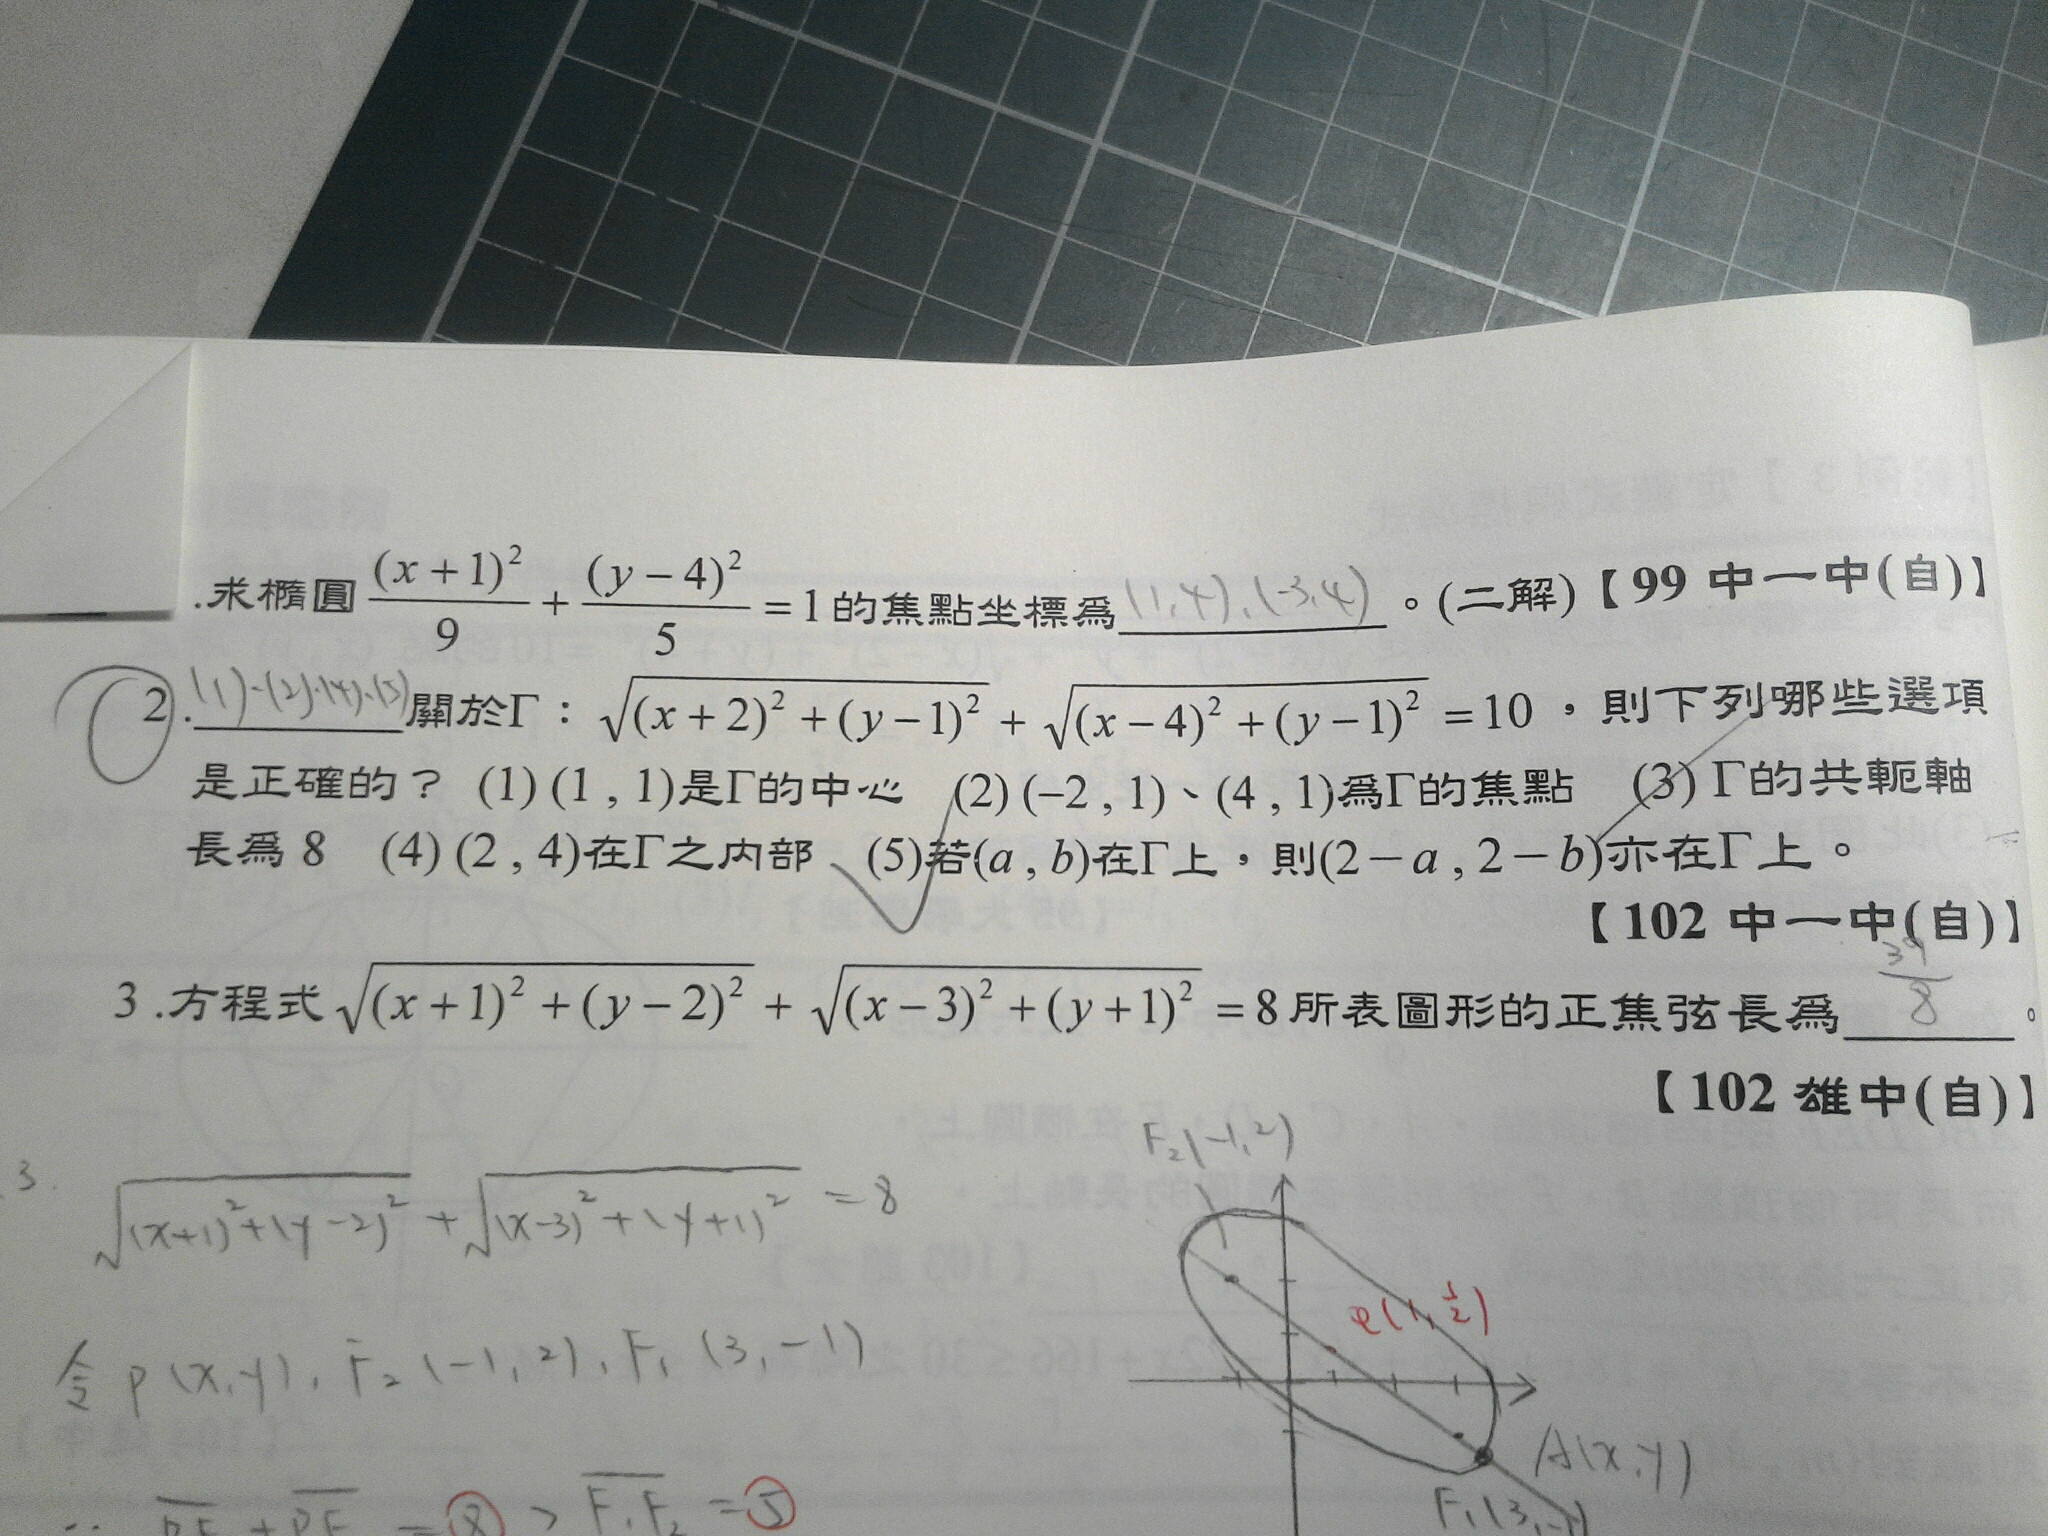 .求橢圓 (x+1)²/9 + (y−4)²/5 = 1 的焦點坐標為 (1,4),(-3,4) 。(二解)【99 中一中(自)】
2. (1)、(2)、(4)、(5) 關於Γ：√((x+2)²+(y−1)²) + √((x−4)²+(y−1)²) = 10，則下列哪些選項
是正確的？ (1) (1 , 1)是Γ的中心 (2) (−2 , 1)、(4 , 1)為Γ的焦點 (3) Γ的共軛軸
長為 8 (4) (2 , 4)在Γ之內部 (5)若(a , b)在Γ上，則(2−a , 2−b)亦在Γ上。
【102 中一中(自)】
3 .方程式 √((x+1)²+(y−2)²) + √((x−3)²+(y+1)²) = 8 所表圖形的正焦弦長為 39/8 。
【102 雄中(自)】
3. √((x+1)²+(y-2)²) + √((x-3)²+(y+1)²) = 8
F₂(-1,2)
令 P(x,y), F₂(-1,2), F₁(3,-1)
A(x,y)
F₁(3,-1)
= 8 > F₁F₂ = 5